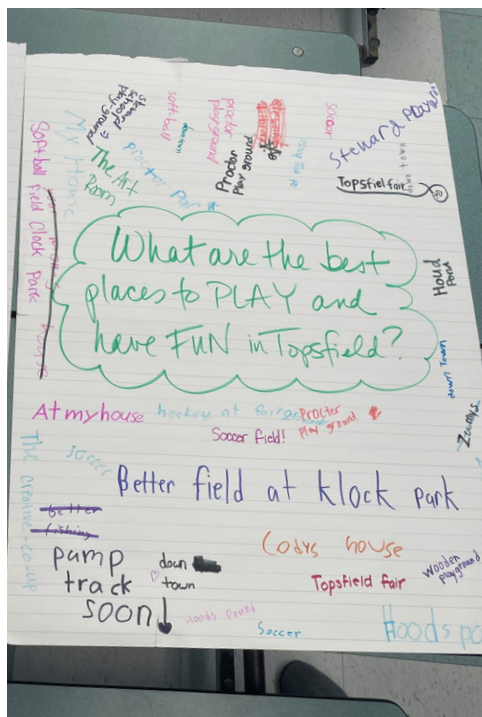 steward
school
play-ground
softball
down
town
proctor
playground
Proctor
Play ground
soccer
Steward PLAY
Topsfiel fair
My House
The Art
Room
proctor Par
Softball field Clock Park
What are the best
places to PLAY and
have FUN in Topsfield?
Houd
Pond
down Town
Zumis
At my house
hockey at fairg
Procter
play ground
Soccer field!
The creative-co-up
soccer
Better field at klock park
better
fishing
pump
track
soon!
down
town
Codys house
Topsfield fair
wooden
playground
Hoods pound
Soccer
Hoods po